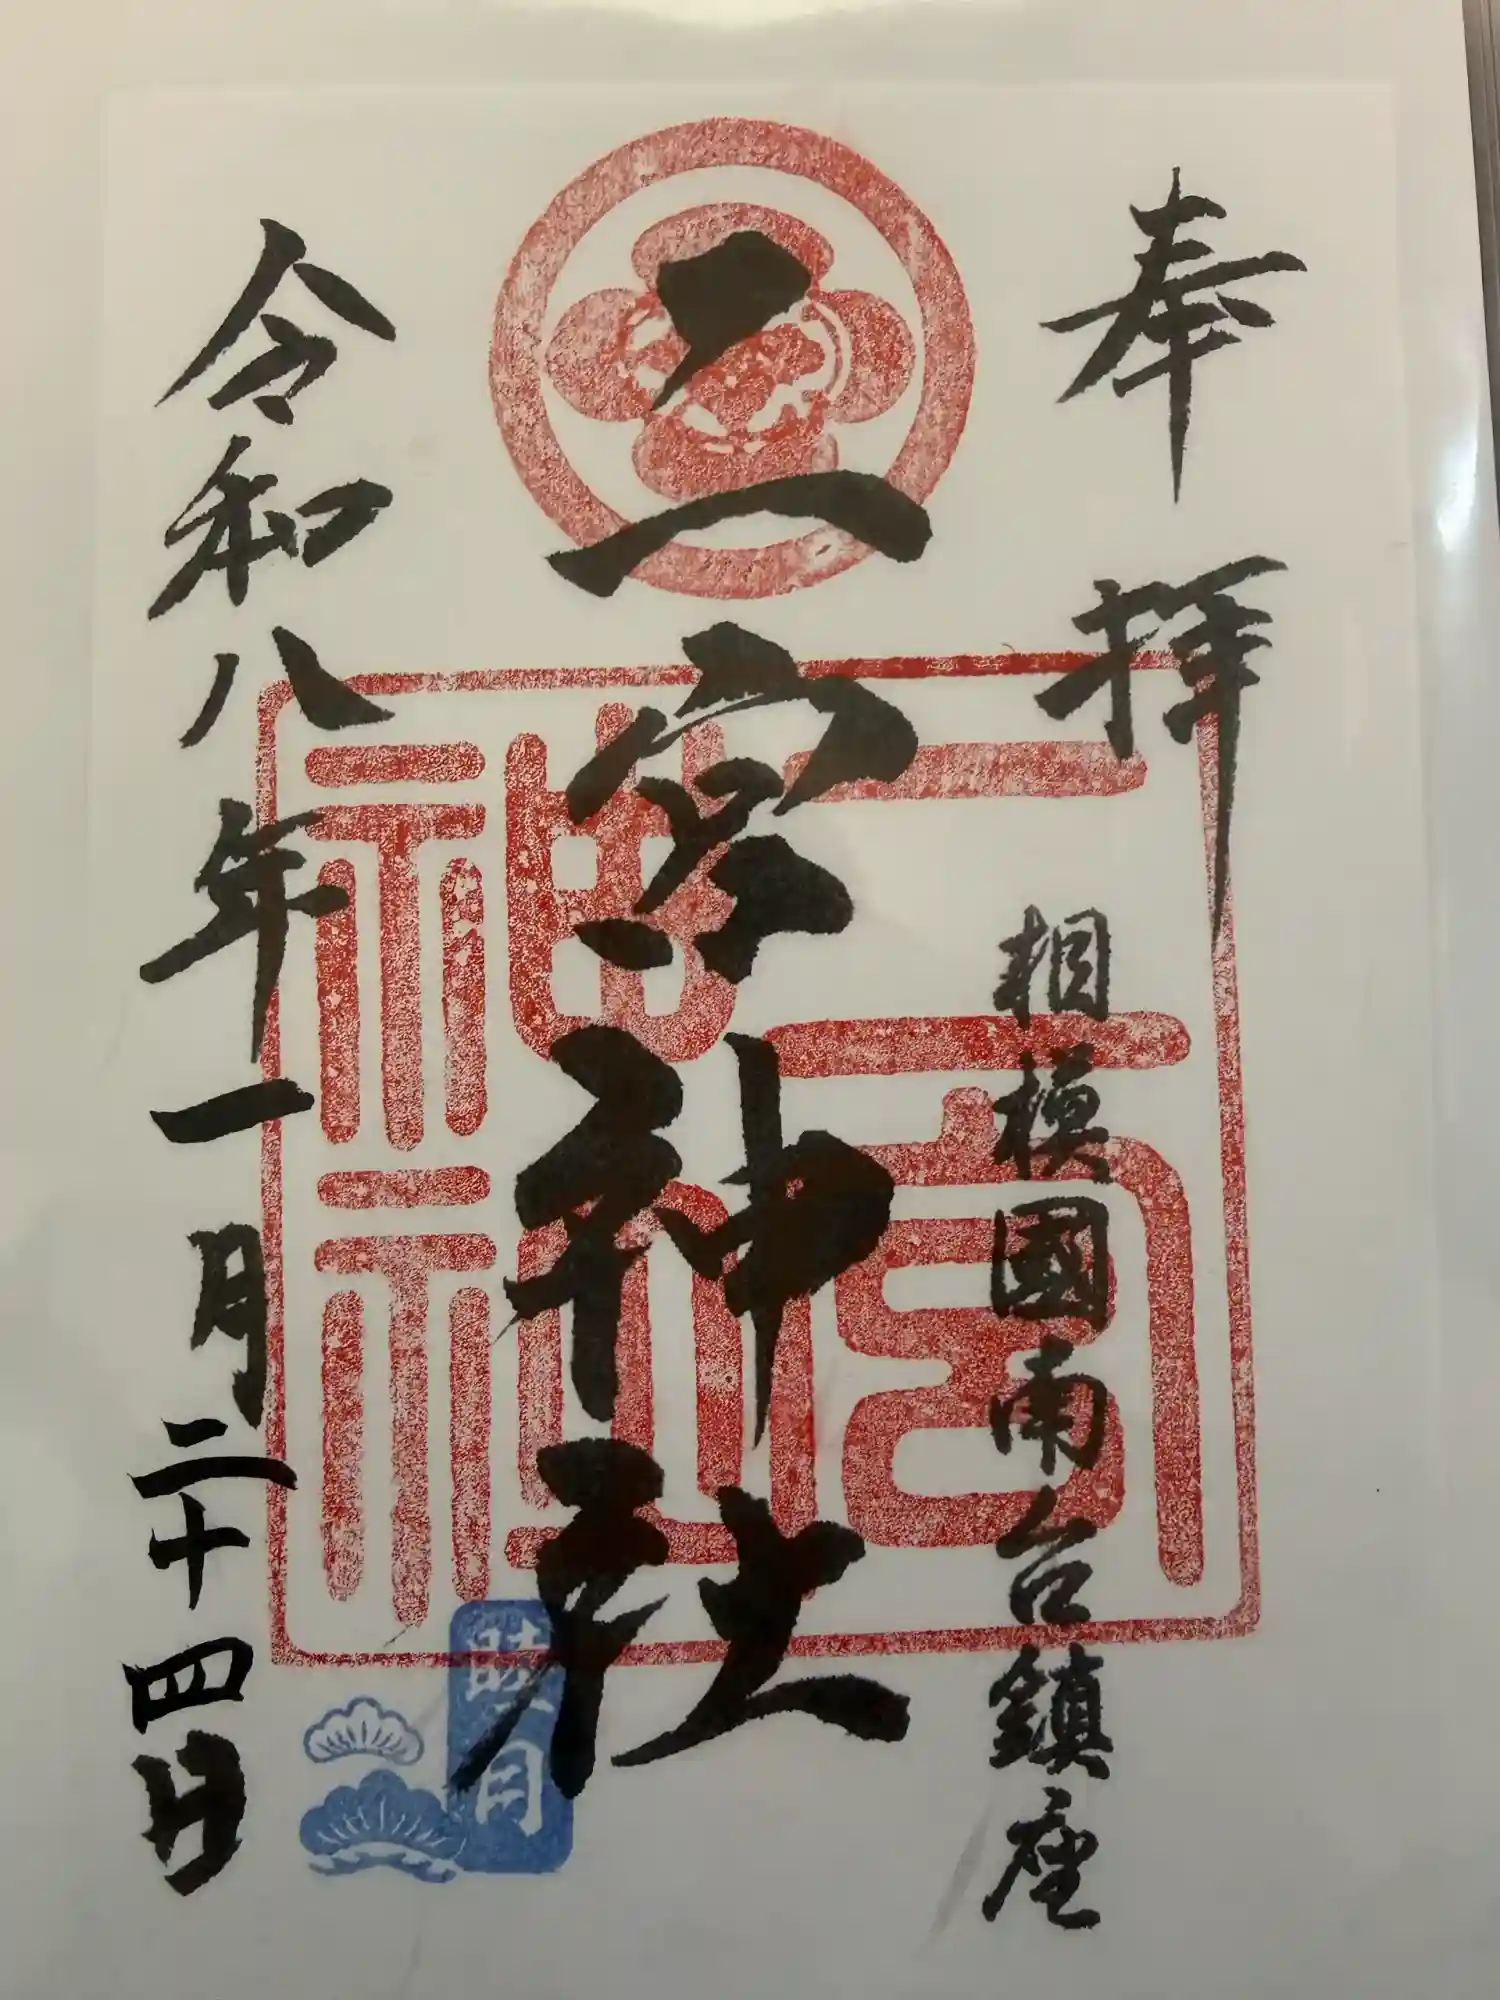 奉拝
相模國南台鎮座
二宮神社
二宮神社
睦月
令和八年一月二十四日